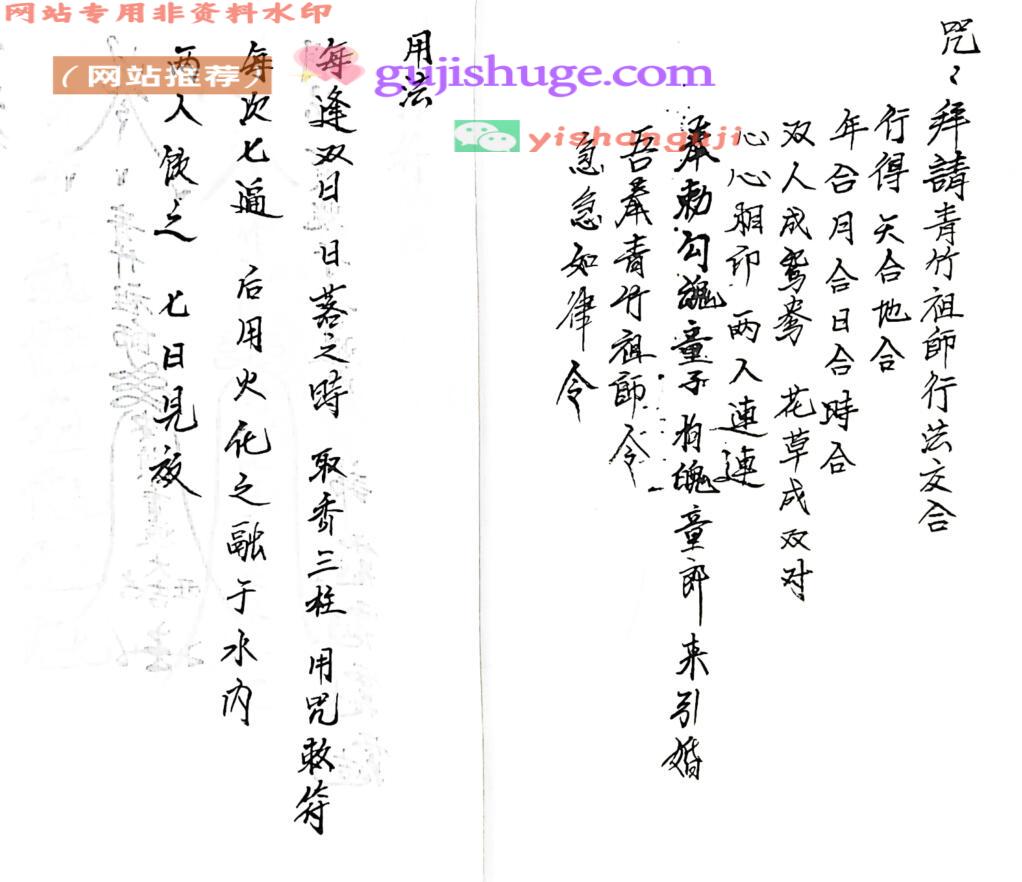 网站专用非资料水印
（网站推荐）
gujishuge.com
yishanguji
咒：
拜請青竹祖師行法交合
行得天合地合
年合月合日合時合
双人成鸳鸯 花草成双对
心心相印 两人連連
奉勅勾魂童子 拘魄童郎来引婚
吾奉青竹祖師令
急急如律令
用法
每逢双日 日落之時 取香三柱 用咒敕符
每次七遍 后用火化之融于水内
两人饮之 七日見效